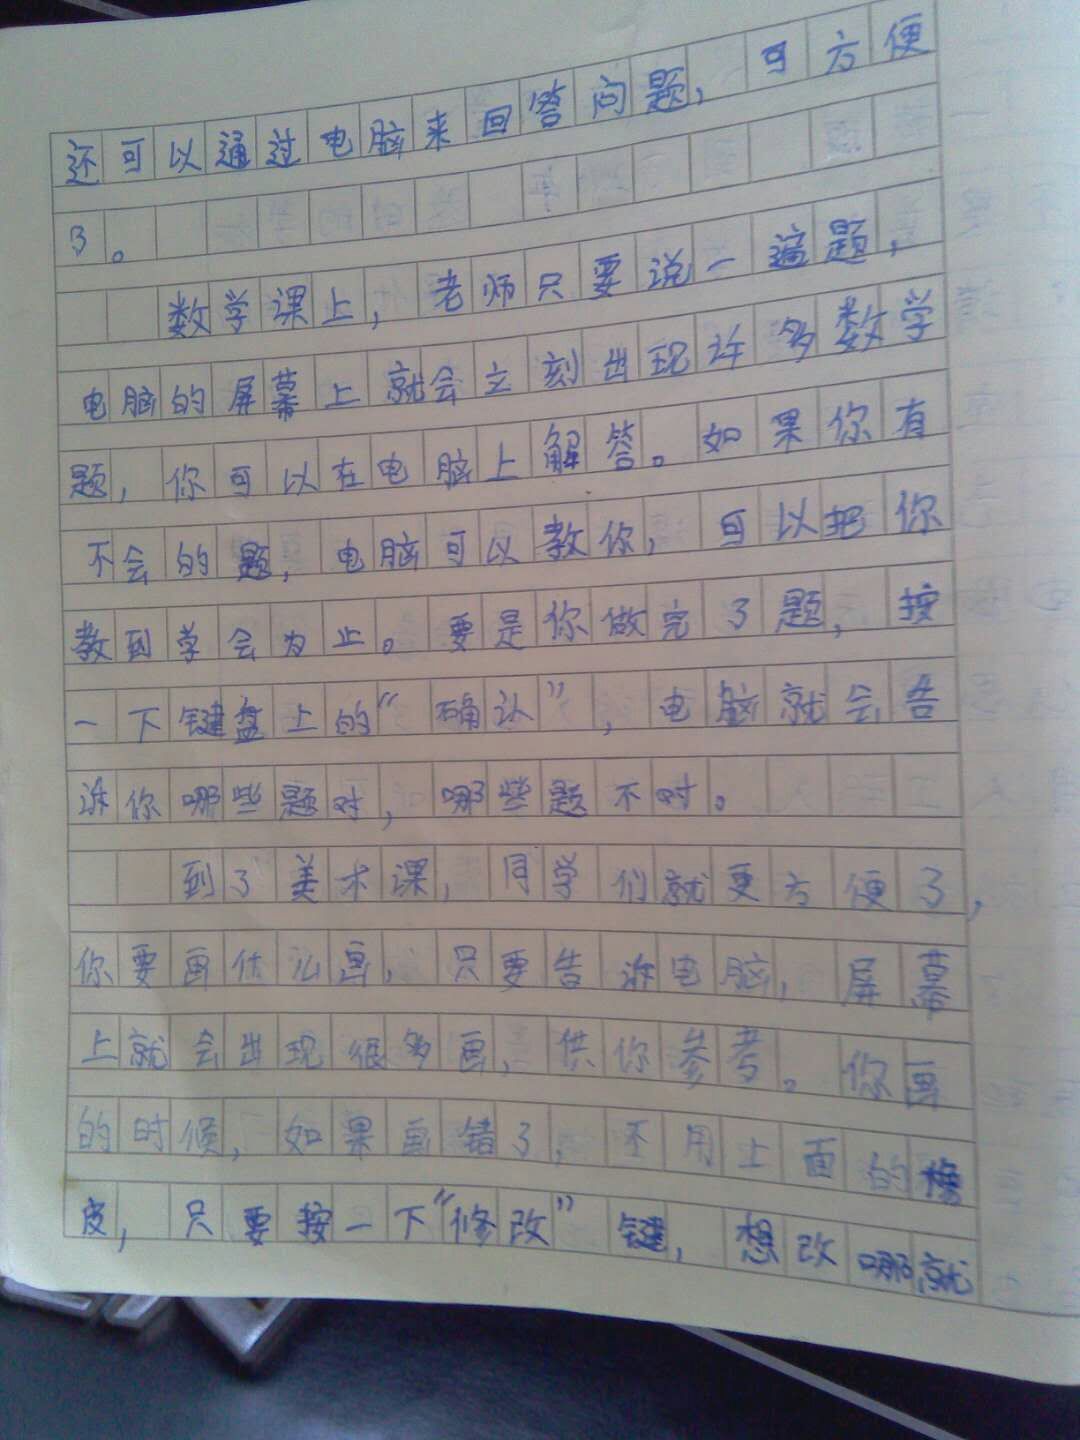 还可以通过电脑来回答问题，可方便
了。
数学课上，老师只要说一遍题，
电脑的屏幕上就会立刻出现许多数学
题，你可以在电脑上解答。如果你有
不会的题，电脑可以教你，可以把你
教到学会为止。要是你做完了题，按
一下键盘上的“确认”，电脑就会告
诉你哪些题对，哪些题不对。
到了美术课，同学们就更方便了，
你要画什么画，只要告诉电脑，屏幕
上就会出现很多画，供你参考。你画
的时候，如果画错了，不用上面的橡
皮，只要按一下“修改”键，想改哪就